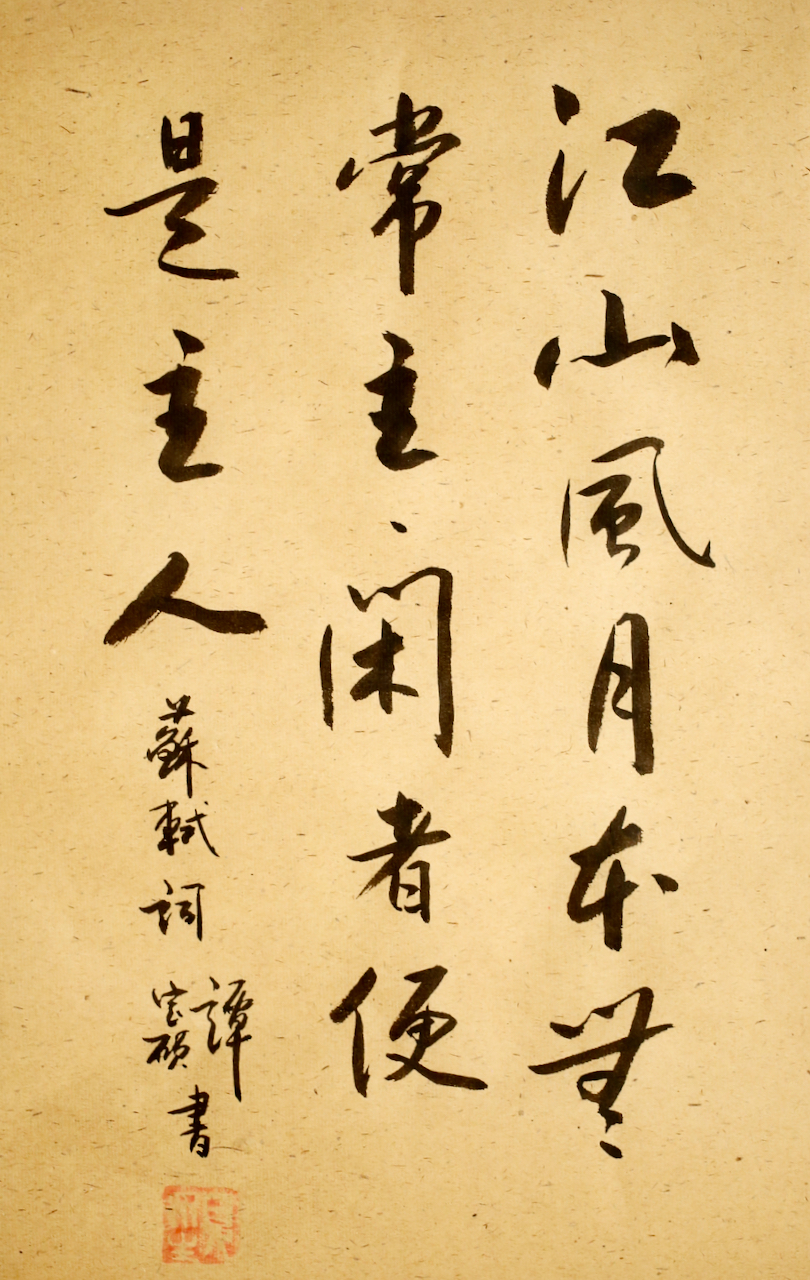 江山風月本無
常主閑者便
是主人
蘇軾詞
譚
宏碩
書